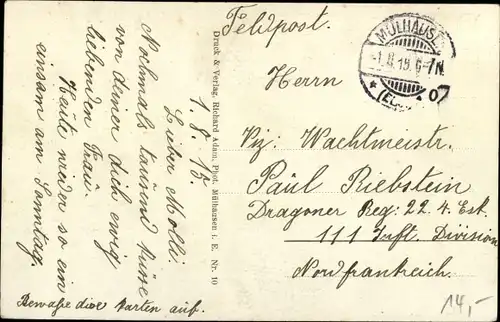 1.8.15.
Lieber Molli.
Nochmals tausend Küsse
von deiner dich ewig
liebenden Frau.
Heute wieder so ein
einsam am Sonntag.
Bewaße die karten auf.
Druck & Verlag, Richard Adam, Phot. Mülhausen i. E. Nr. 10
Feldpost.
MÜLHAUSEN
1.8.15. 6-7N.
Herrn
Viz. Wachtmeistr.
Paul Riebstein
Dragoner Reg: 22. 4. Esk.
111 Inft. Division
Nordfrankreich.
14,-